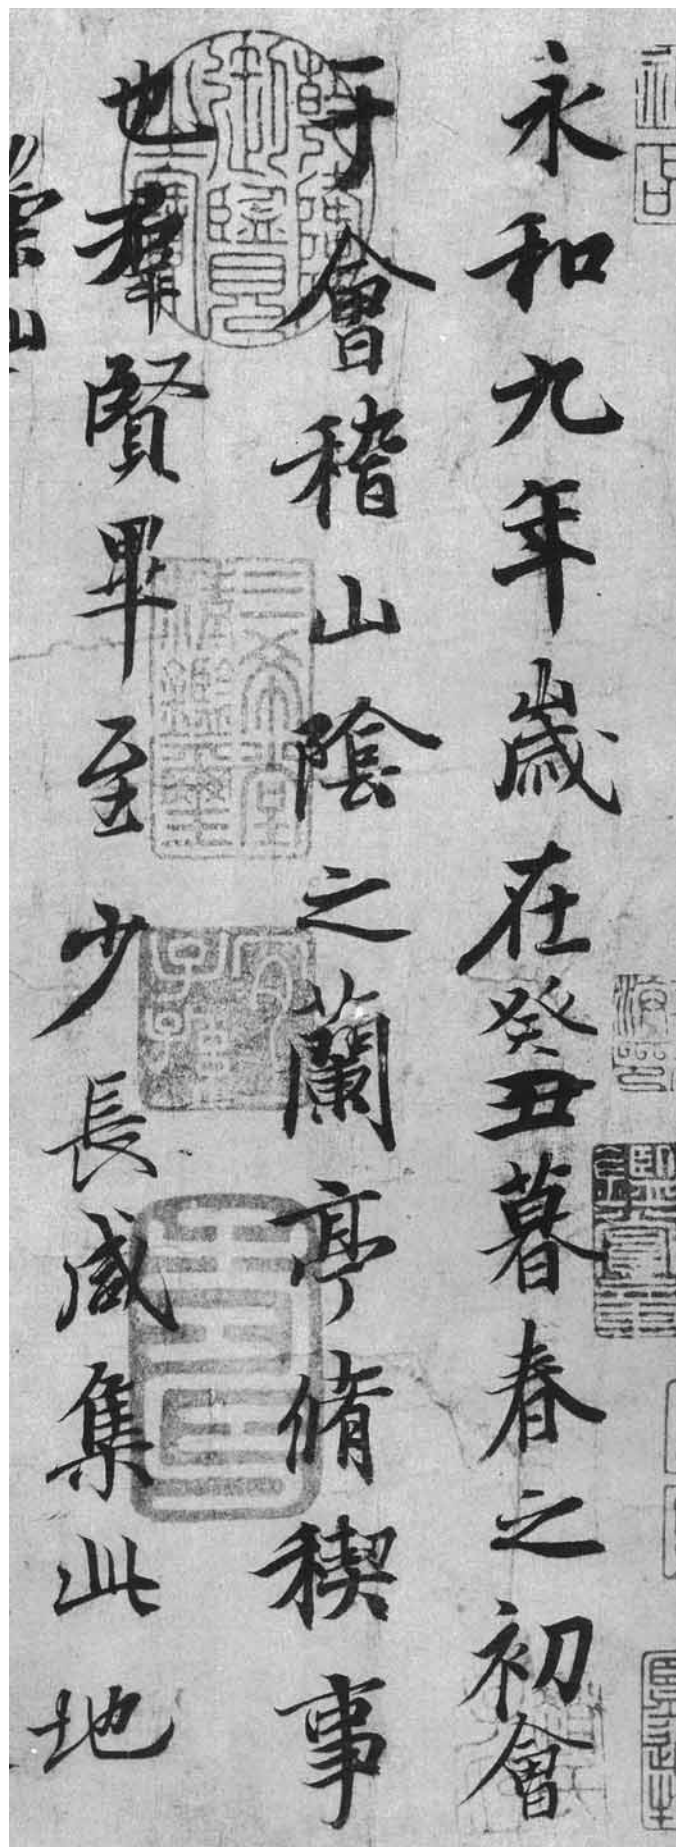 永和九年歲在癸丑暮春之初會
于會稽山陰之蘭亭脩稧事
也羣賢畢至少長咸集此地
崇山